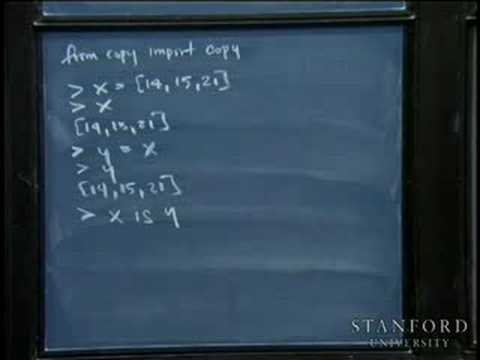 from copy import copy
> x = [14, 15, 21]
> x
[14, 15, 21]
> y = x
> y
[14, 15, 21]
> x is y
STANFORD
UNIVERSITY